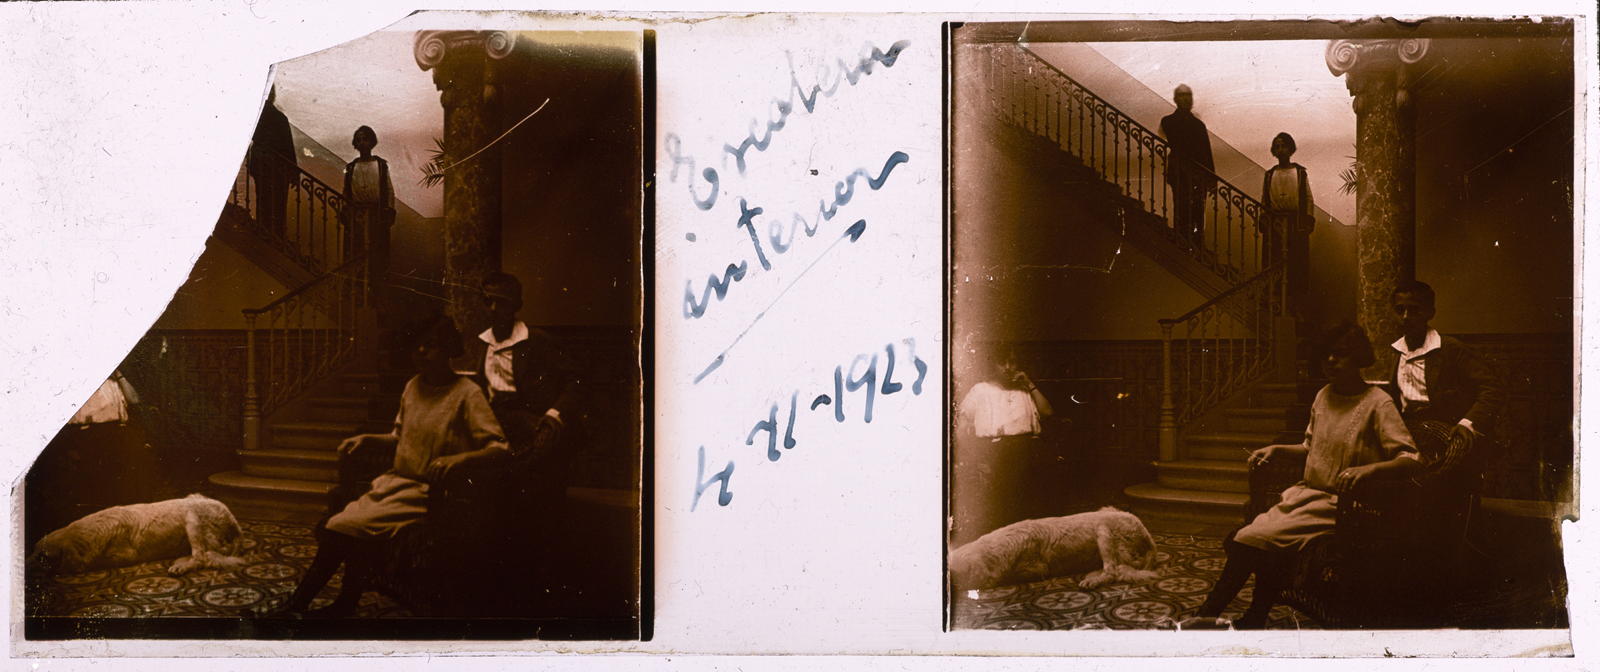 Escalera
interior
4-XI-1923